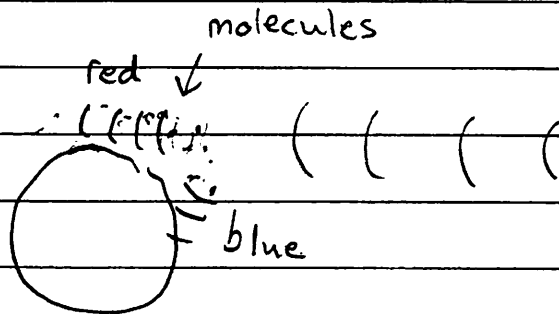 molecules
red
blue